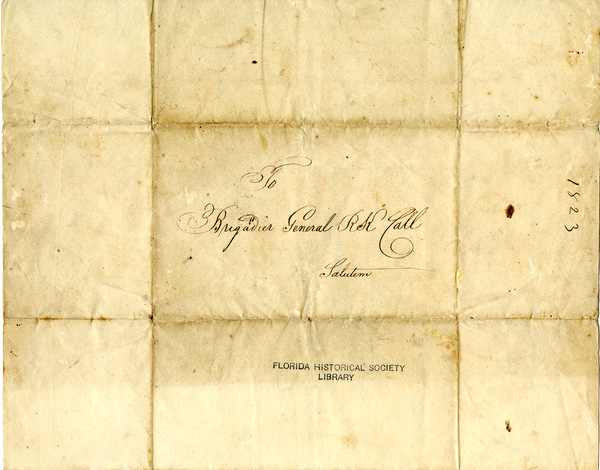 To
Brigadier General RK Call
Salutem
1823
FLORIDA HISTORICAL SOCIETY
LIBRARY